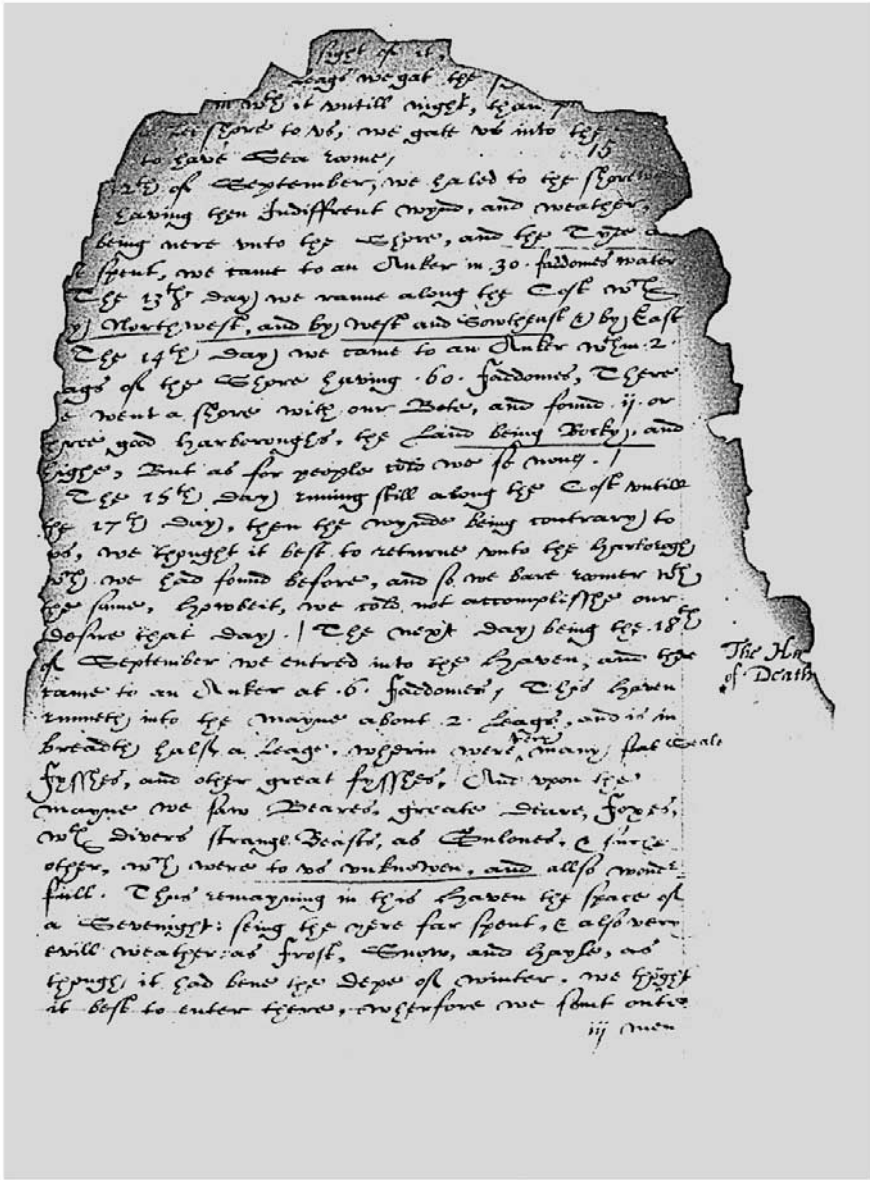 sight of it,
Leags we gat the
in wch it untill night, than
shore to us, we gate us into the
to have Sea rome,
15
12th of September, we haled to the shore
having then Indiffrent wynd, and weather,
being nere unto the Shore, and the Tyde a
spent, we came to an Anker in .30. faddomes water
The 13th day we ranne along the Cost wch
North west, and by west and Sowtheast & by East
The 14th day we came to an Anker wthin .2.
ags of the Shore having .60. faddomes, There
e went a shore with our Bote, and found .ij. or
hree good harboroughs, the Land being Rocky, and
highe, But as for people cold we se none.
The 15th day runing still along the Cost untill
the 17th day, then the wynde being contrary to
us, we thought it best to returne unto the harborogh
wch we had found before, and so we bare romer wth
the same, howbeit, we cold not accomplisshe our
desire that day. | The next day being the .18th
of September we entred into the haven, and there
came to an Anker at .6. faddomes, This haven
runneth into the mayne about .2. Leags, and is in
breadth half a Leage, wherin were very many seale
fysshes, and other great fysshes, And upon the
mayne we saw Beares, greate Deare, foxes,
wth divers strange Beasts, as Gulones, & suche
other, wch were to us unknowen, and allso wonder
full. Thus remayning in this haven the space of
a Sevenight: seing the yere far spent, & also very
evill weather: as frost, Snow, and hayle, as
though it had bene the depe of winter, we thought
it best to enter there, wherfore we sent oute
iij men
The Ha
of Death